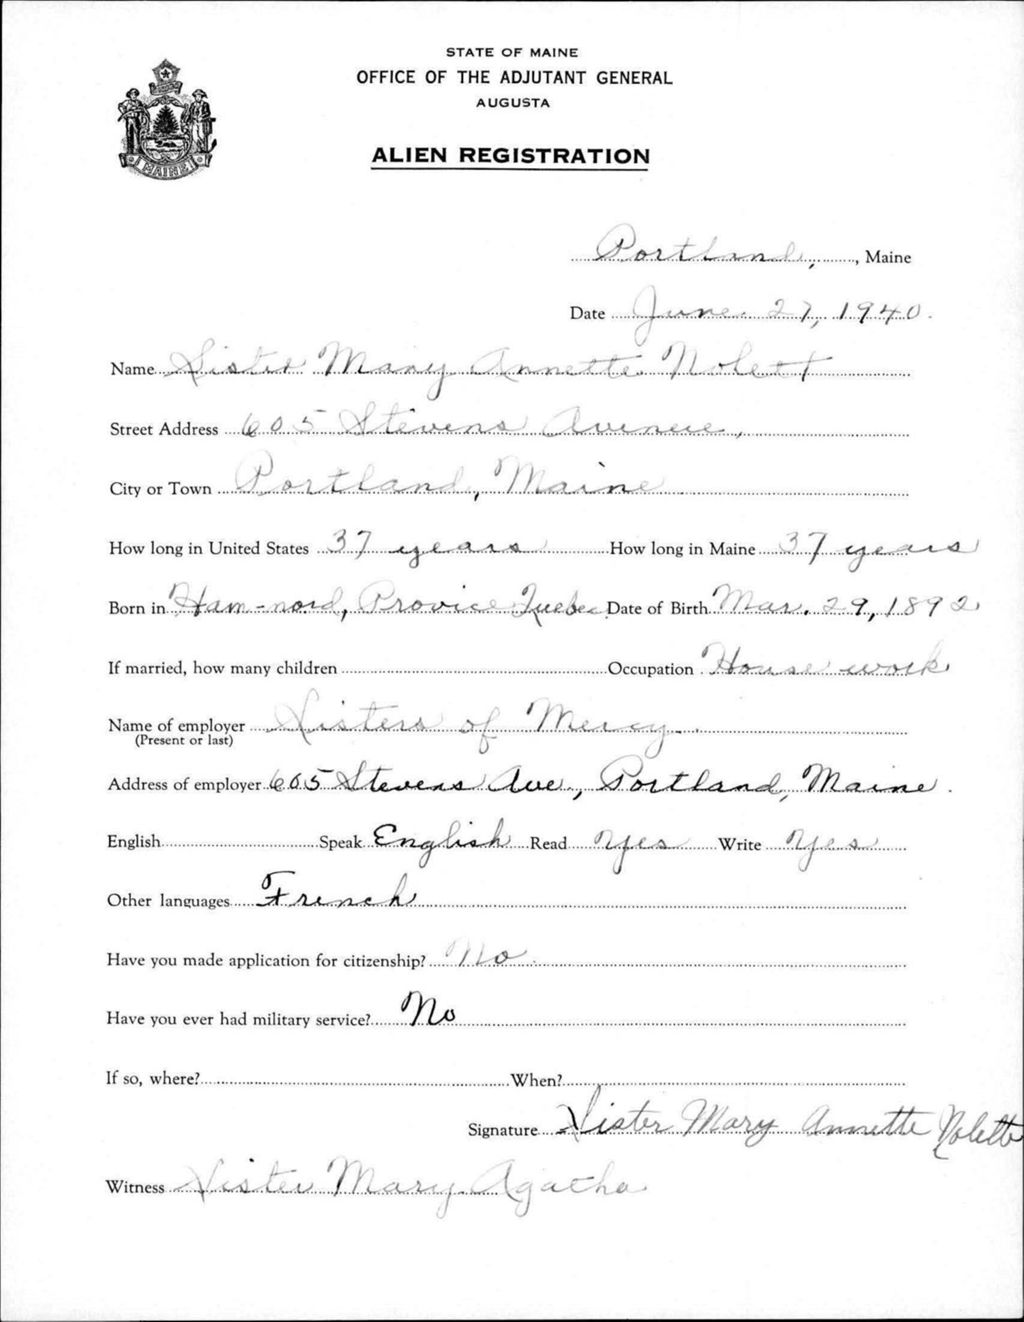 STATE OF MAINE
OFFICE OF THE ADJUTANT GENERAL
AUGUSTA
ALIEN REGISTRATION
MAINE
Portland, , Maine
Date June 27, 1940.
Name Sister Mary Annette Nolett
Street Address 605 Stevens Avenue,
City or Town Portland, Maine
How long in United States 37 years How long in Maine 37 years
Born in Ham-nord, Provice Quebec Date of Birth Mar. 29, 1892
If married, how many children Occupation House work
Name of employer Sisters of Mercy
(Present or last)
Address of employer 605 Stevens Ave., Portland, Maine.
English Speak English Read Yes Write Yes
Other languages French
Have you made application for citizenship? No.
Have you ever had military service? No
If so, where? When?
Signature Sister Mary Annette Nolette
Witness Sister Mary Agatha